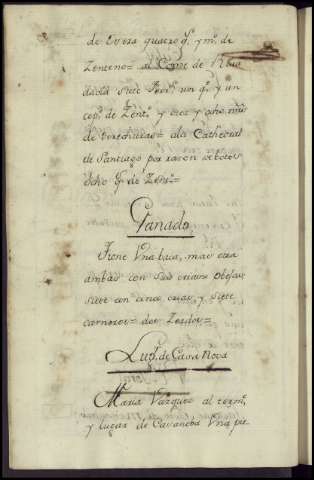 de Evera quatro f.s y m.o de
Zenteno= al Conde de Riba
davia siete Ferr.s un q.o y un
cop.o de Zent.o y diez y ocho mrs
de derechuras= ala Cathedral
de Santiago por razon de botos
ocho q.s de Zent.o=
Ganado
Tiene Una baca, mas otra
ambas con sus crias= Obejas
siete con cinco crias, y siete
carneros= dos Zerdos=
Lug.r de Casa Nova
Maria Vazquez al term.o
y lugar de Casanoba Una pie